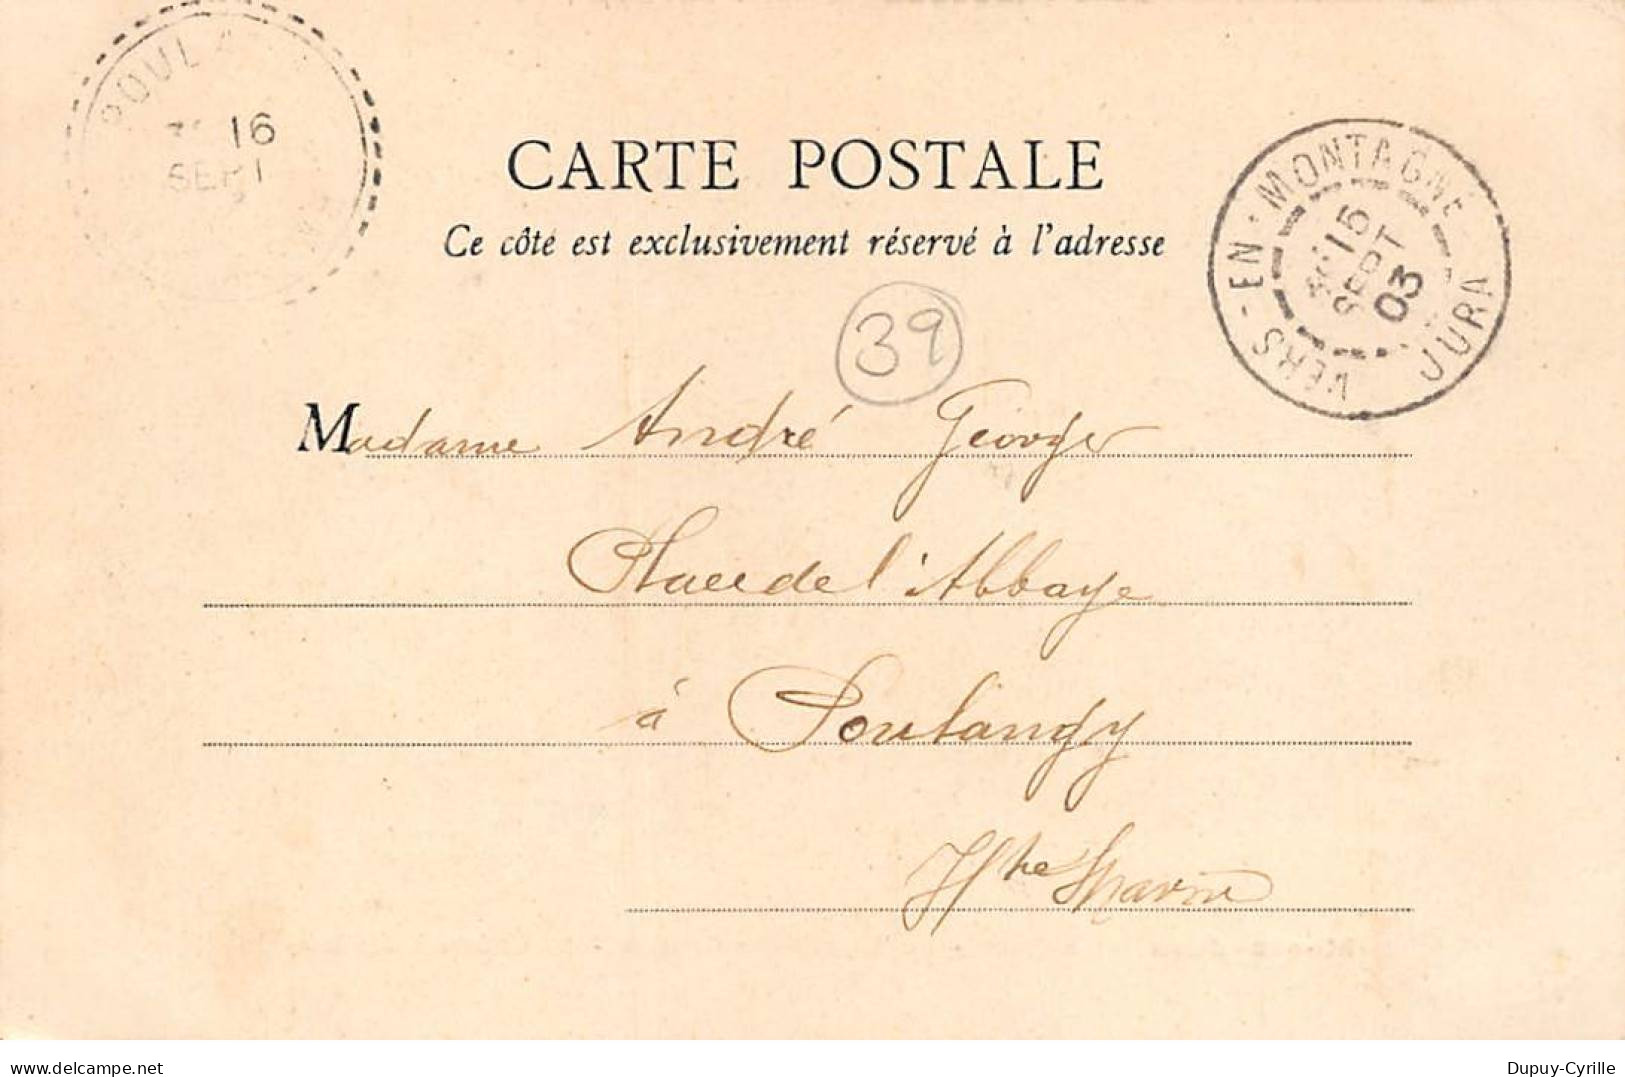 POULA
16
SEPT
CARTE POSTALE
Ce côté est exclusivement réservé à l'adresse
VERS-EN-MONTAGNE
15
SEPT
03
JURA
39
Madame André George
Place de l'Abbaye
à Poulangy
Hte Marne
www.delcampe.net
Dupuy-Cyrille